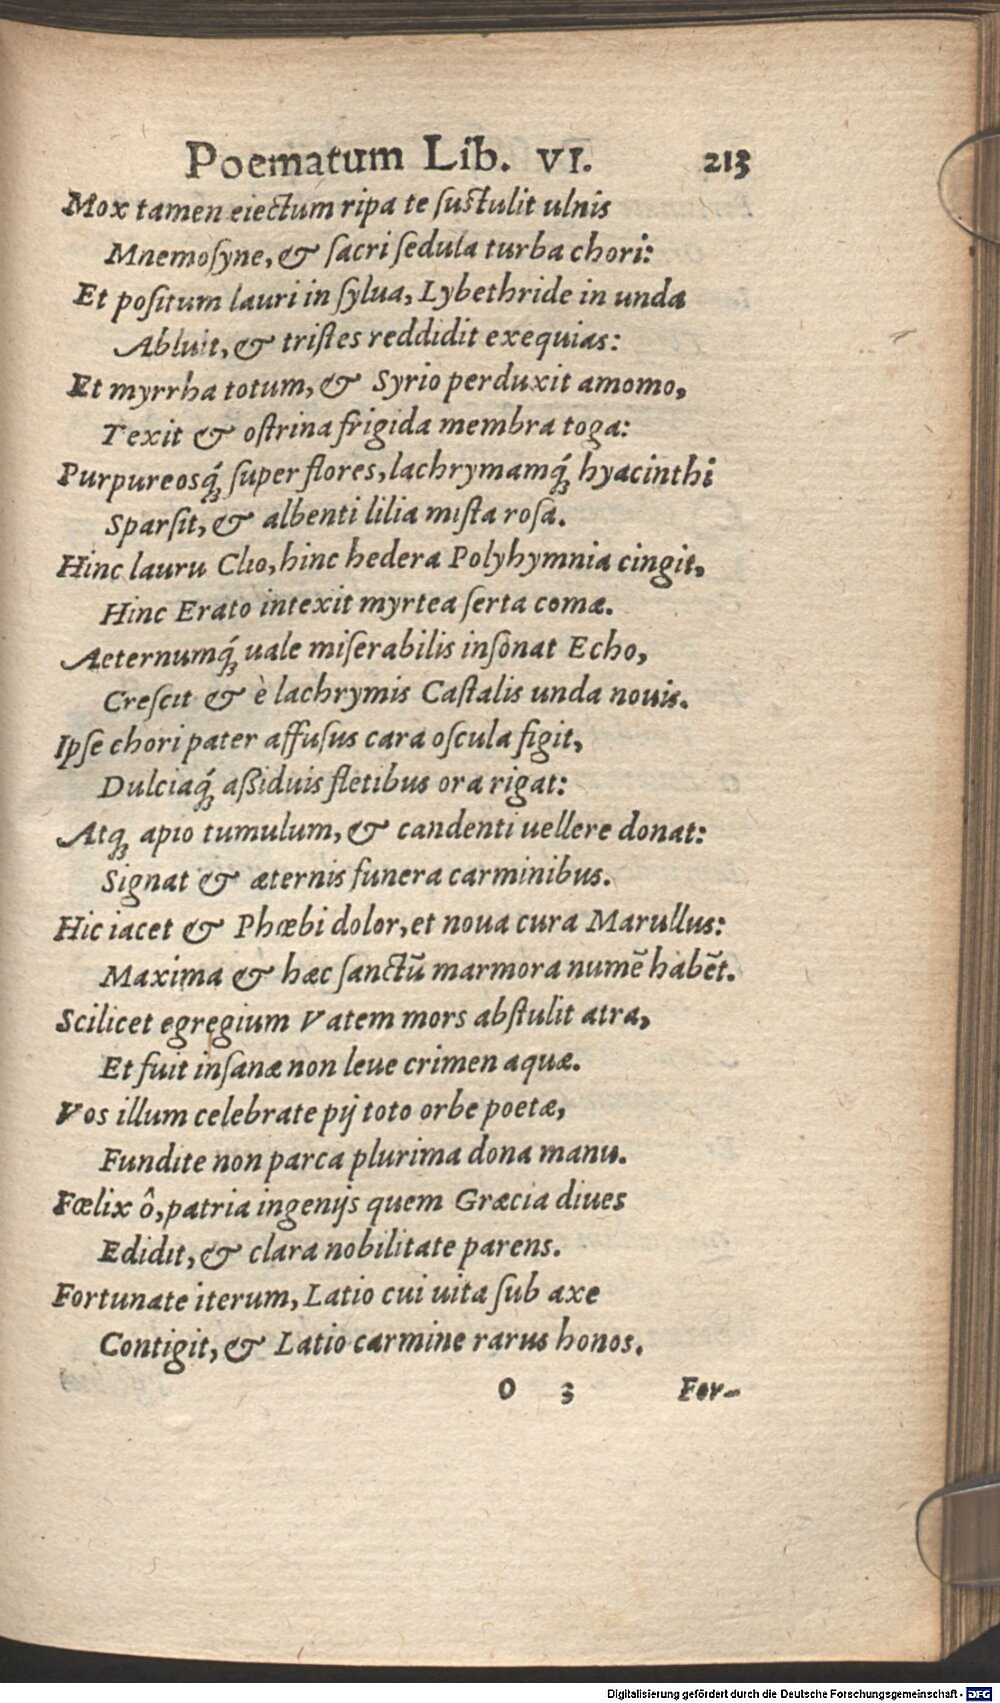 Poematum Lib. VI. 213
Mox tamen eiectum ripa te ſuſtulit ulnis
Mnemoſyne, & ſacri ſedula turba chori:
Et poſitum lauri in ſylua, Lybethride in unda
Abluit, & triſtes reddidit exequias:
Et myrrha totum, & Syrio perduxit amomo,
Texit & oſtrina frigida membra toga:
Purpureosq́; ſuper flores, lachrymamq́; hyacinthi
Sparſit, & albenti lilia miſta roſa.
Hinc lauru Clio, hinc hedera Polyhymnia cingit,
Hinc Erato intexit myrtea ſerta comæ.
Aeternumq́; uale miſerabilis inſonat Echo,
Creſcit & è lachrymis Caſtalis unda nouis.
Ipſe chori pater affuſus cara oſcula figit,
Dulciaq́; aßiduis fletibus ora rigat:
Atq; apio tumulum, & candenti uellere donat:
Signat & æternis funera carminibus.
Hic iacet & Phœbi dolor, et noua cura Marullus:
Maxima & hæc ſanctū marmora numē habēt.
Scilicet egregium Vatem mors abſtulit atra,
Et fuit inſanæ non leue crimen aquæ.
Vos illum celebrate pij toto orbe poetæ,
Fundite non parca plurima dona manu.
Fœlix ô, patria ingenijs quem Græcia diues
Edidit, & clara nobilitate parens.
Fortunate iterum, Latio cui uita ſub axe
Contigit, & Latio carmine rarus honos.
O 3 For-
Digitalisierung gefördert durch die Deutsche Forschungsgemeinschaft - DFG